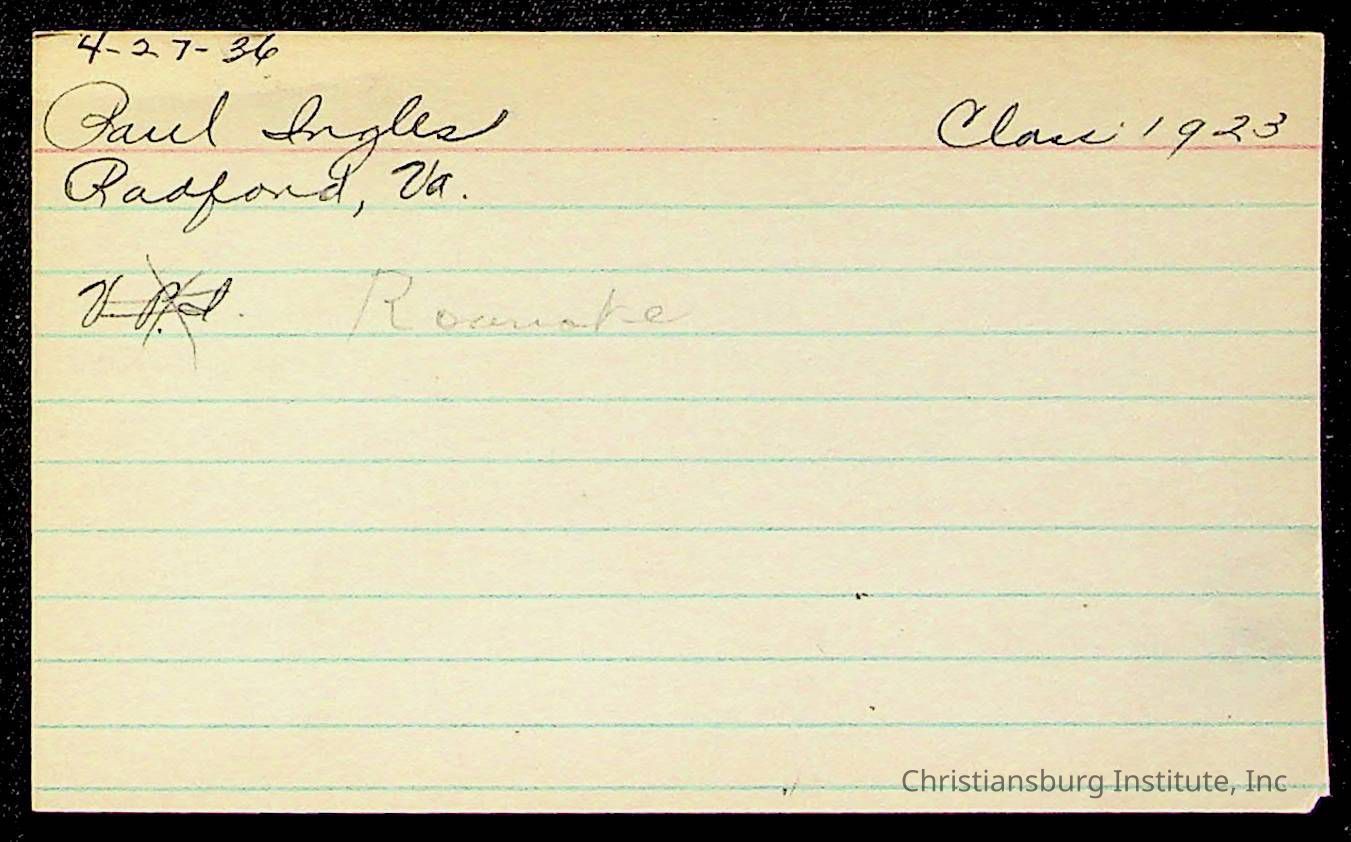 4-27-36
Paul Ingles Class 1923
Radford, Va.
V.P.I. Roanoke
Christiansburg Institute, Inc